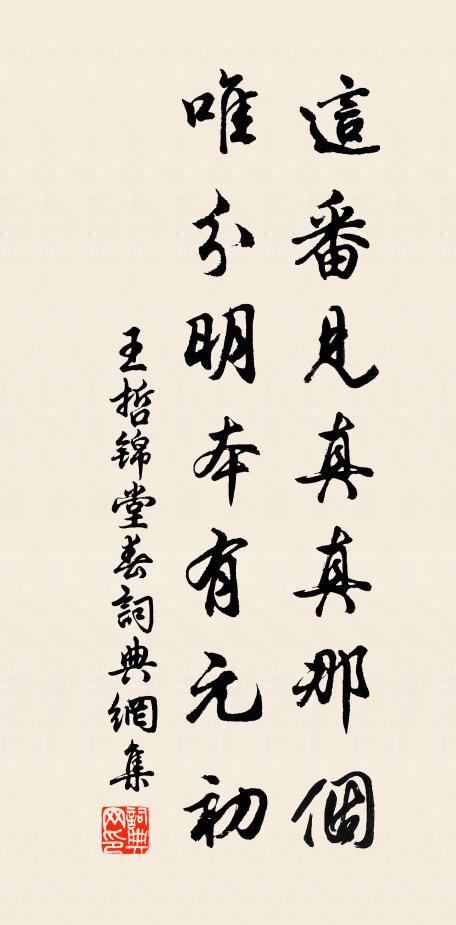 這番見真真那個
唯分明本有元初
王哲锦堂春詞典網集
詞典网印